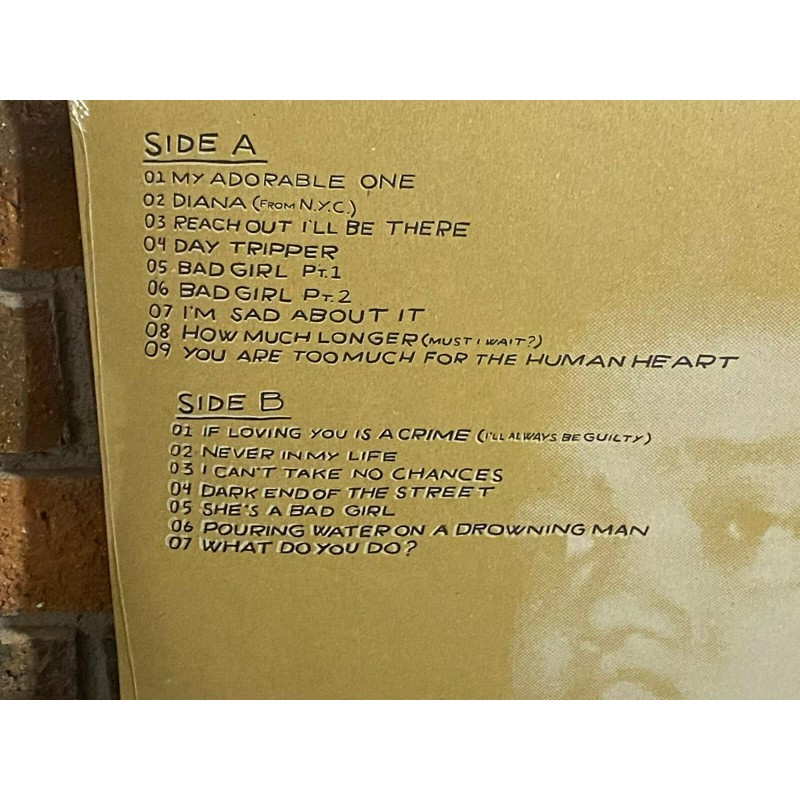 SIDE A
01 MY ADORABLE ONE
02 DIANA (FROM N.Y.C.)
03 REACH OUT I'LL BE THERE
04 DAY TRIPPER
05 BAD GIRL PT.1
06 BAD GIRL PT.2
07 I'M SAD ABOUT IT
08 HOW MUCH LONGER (MUST I WAIT?)
09 YOU ARE TOO MUCH FOR THE HUMAN HEART
SIDE B
01 IF LOVING YOU IS A CRIME (I'LL ALWAYS BE GUILTY)
02 NEVER IN MY LIFE
03 I CAN'T TAKE NO CHANCES
04 DARK END OF THE STREET
05 SHE'S A BAD GIRL
06 POURING WATER ON A DROWNING MAN
07 WHAT DO YOU DO?